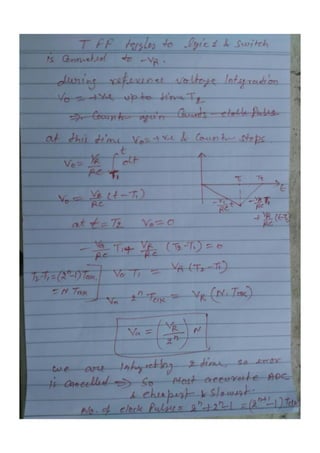 T FF toggles to logic 1 & switch
is connected to -VR.
during reference voltage Integration
Vo = +ve upto time T2
⇒ Counter again Counts clock Pulses
at this time Vo = +ve & Counter stops
Vo = VR/RC ∫ T1 t dt
T1 T2 t
Vo = VR/RC (t - T1)
-Va/RC t
-Va/RC T1
+ VR/RC (t-T1)
at t = T2 Vo = 0
-Va/RC T1 + VR/RC (T2 - T1) = 0
T2-T1 = (2^n-1) TCLK
= N TCLK
Va T1 = VR (T2 - T1)
Va 2^n TCLK = VR (N. TCLK)
Va = (VR/2^n) N
we are integrating 2 time, so error
is cancelled ⇒ So Most accurate ADC
& cheapest & Slowest.
No. of clock Pulses = 2^n + 2^n - 1 = (2^n+1 - 1) TCLK